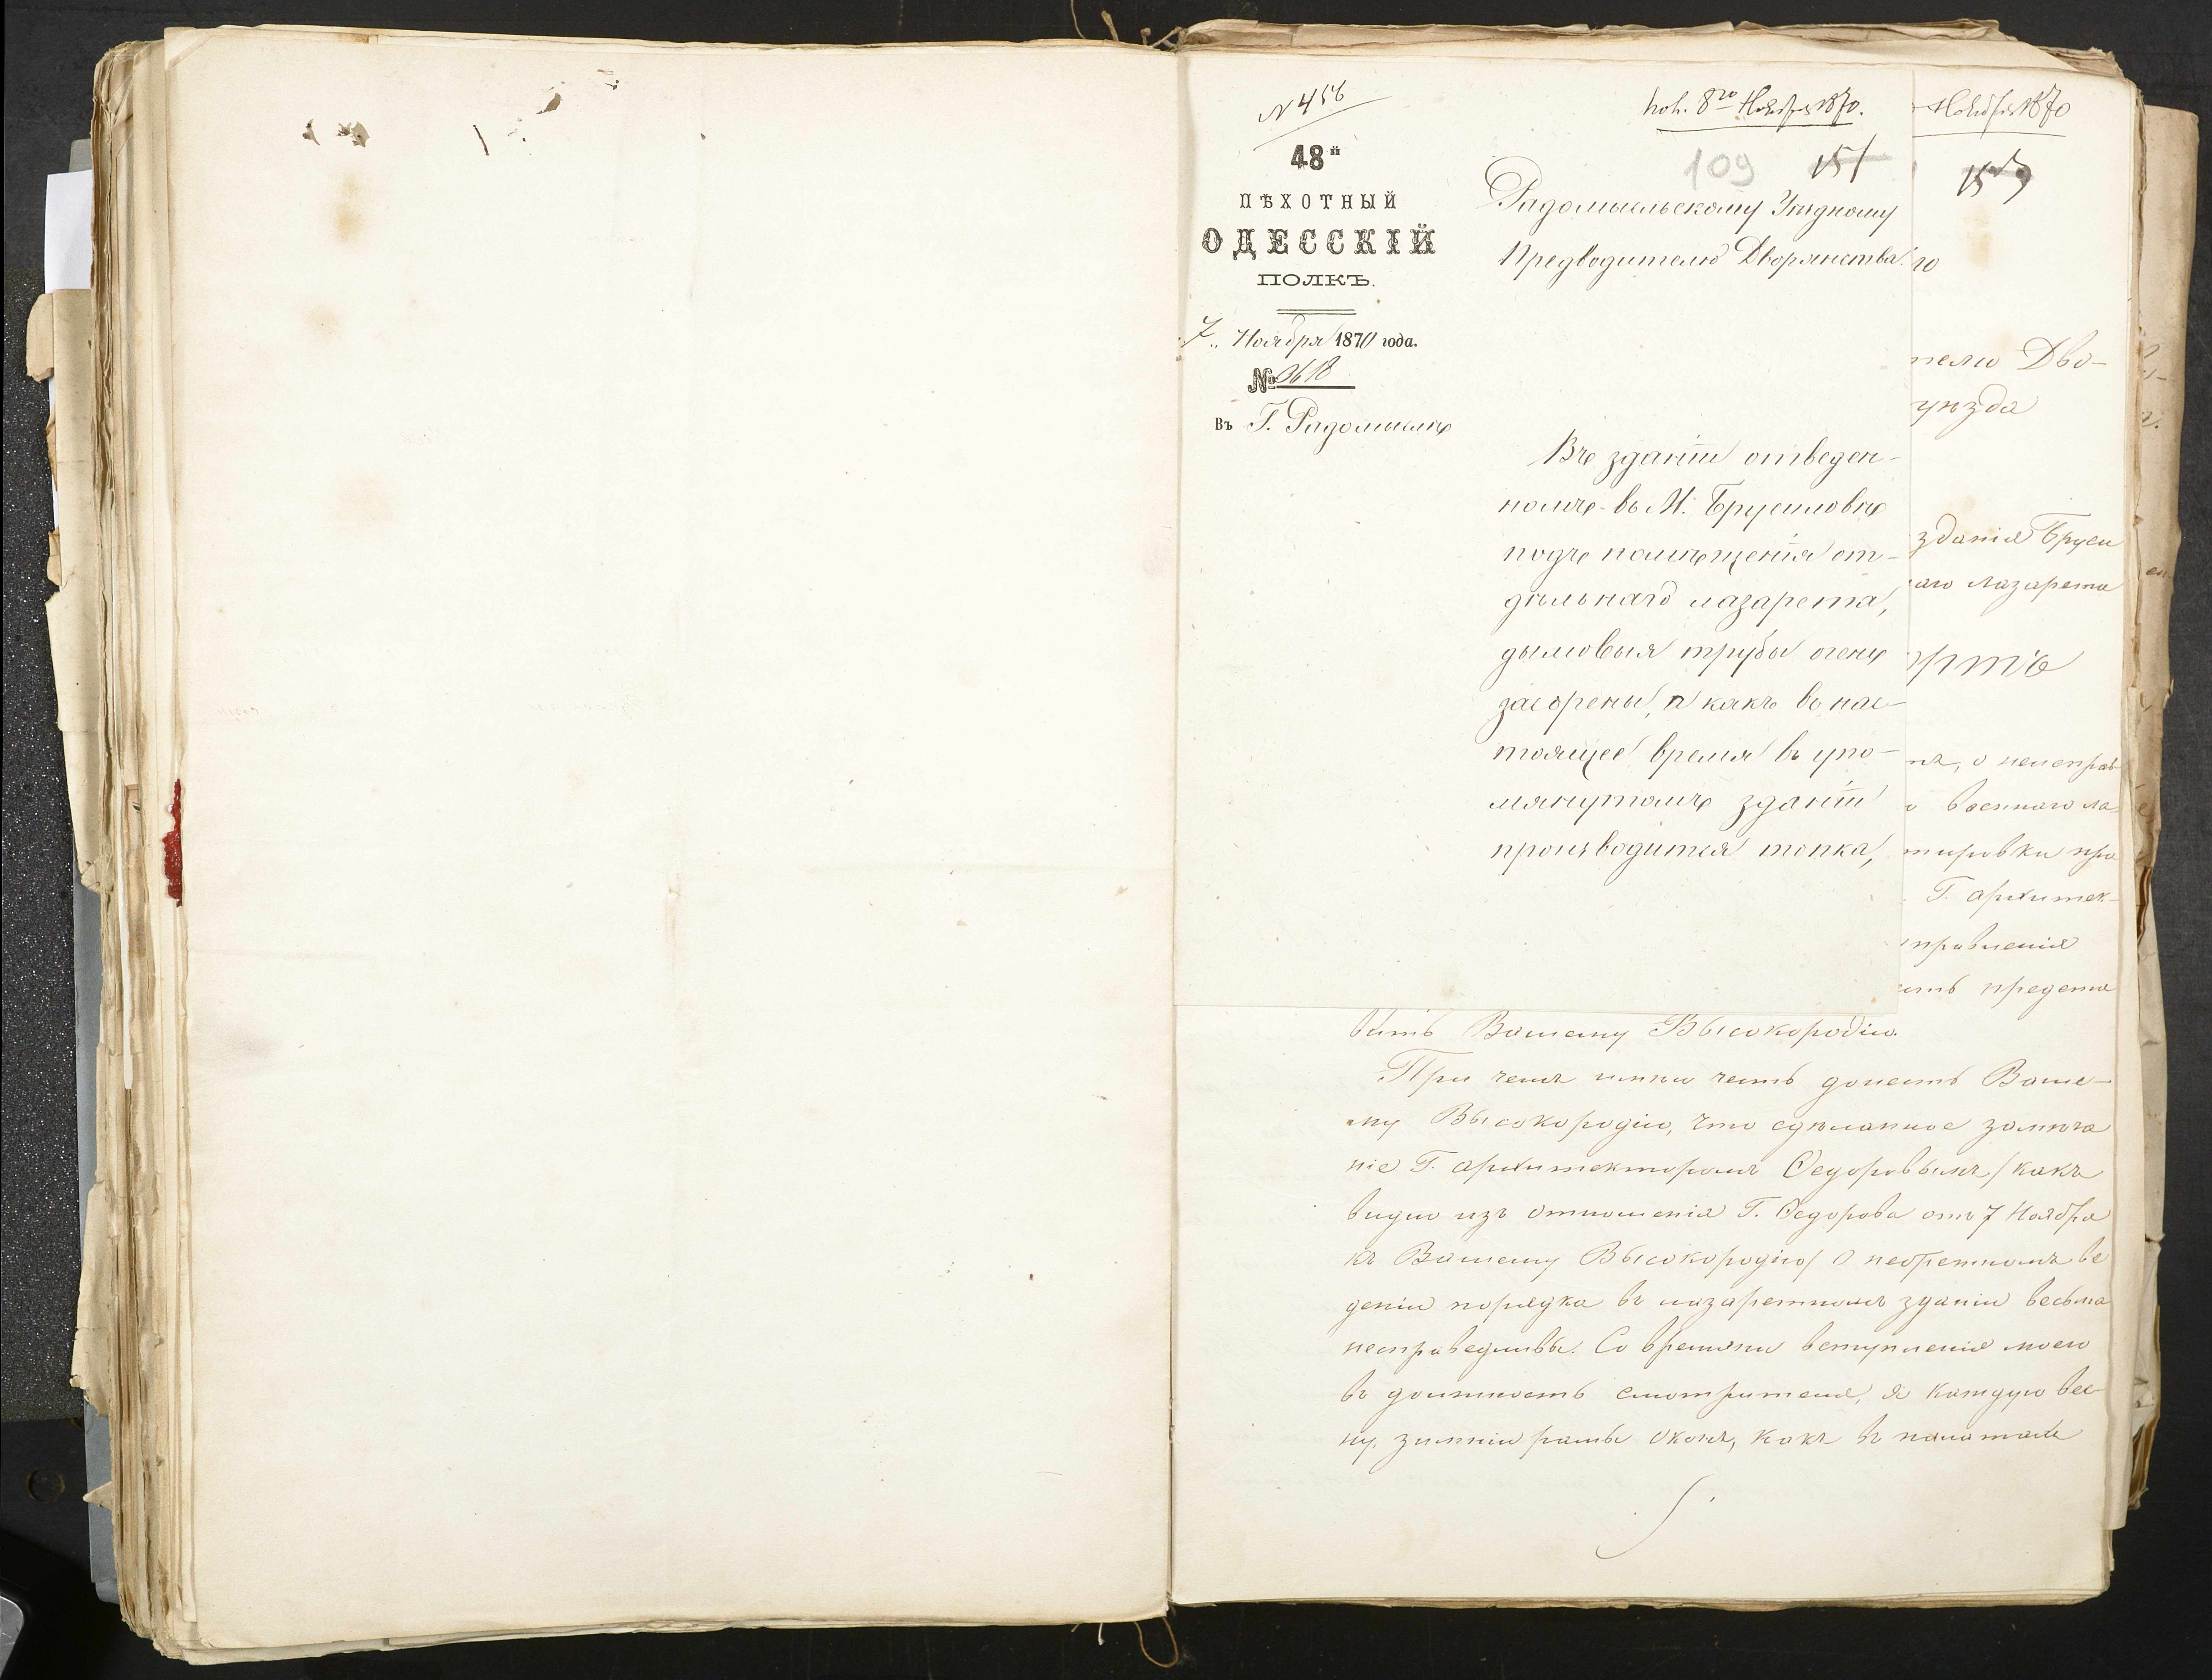 N 456
48й
ПѢХОТНЫЙ
ОДЕССКІЙ
ПОЛКЪ.
7 „ Ноября 1870 года.
№ 3618
Въ Г. Радомыслѣ
пол. 8го Ноября 1870.
109 151
Радомысльскому Уѣздному
Предводителю Дворянства.
Въ зданіи отведен-
номъ въ М. Брусиловѣ
подъ помѣщенія от-
дѣльнаго лазарета,
дымовыя трубы очень
засорены, а какъ въ нас-
тоящее время въ упо-
мянутомъ зданіи
производится топка,
Ноября 1870
го
телю Дво-
уѣзда
зданія Бруси
аго лазарета
ортъ
я, о неисправ
военнаго ла
тировки про
Г. архитек-
справленія
представ
вить Вашему Высокородію.
При чемъ имѣю честь донесть Ваше-
му Высокородію, что сдѣланное замѣча
ніе Г. архитекторомъ Ѳедоровымъ / какъ
видно изъ отношенія Г. Ѳедорова отъ 7 Ноября
къ Вашему Высокородію / о небрежномъ ве
деніи порядка въ лазаретномъ зданіи весьма
несправедливы. Со времяни вступленія моего
въ должность смотрителя, я каждую вес-
ну, зимніи рамы оконъ, какъ въ палатахъ